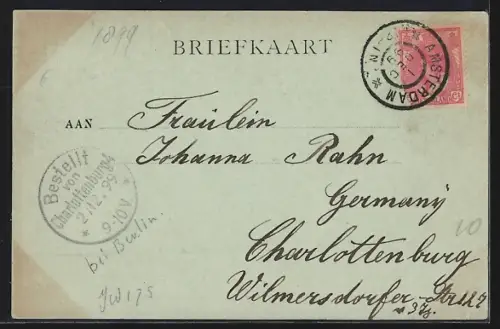 1899
BRIEFKAART
AMSTERDAM
AAN Fräulein
Johanna Rahn
Germany
Charlottenburg
bei Berlin.
Wilmersdorfer Str. 127
Bestellt
von
Charlottenburg 4
2.12.99
9-10V
10